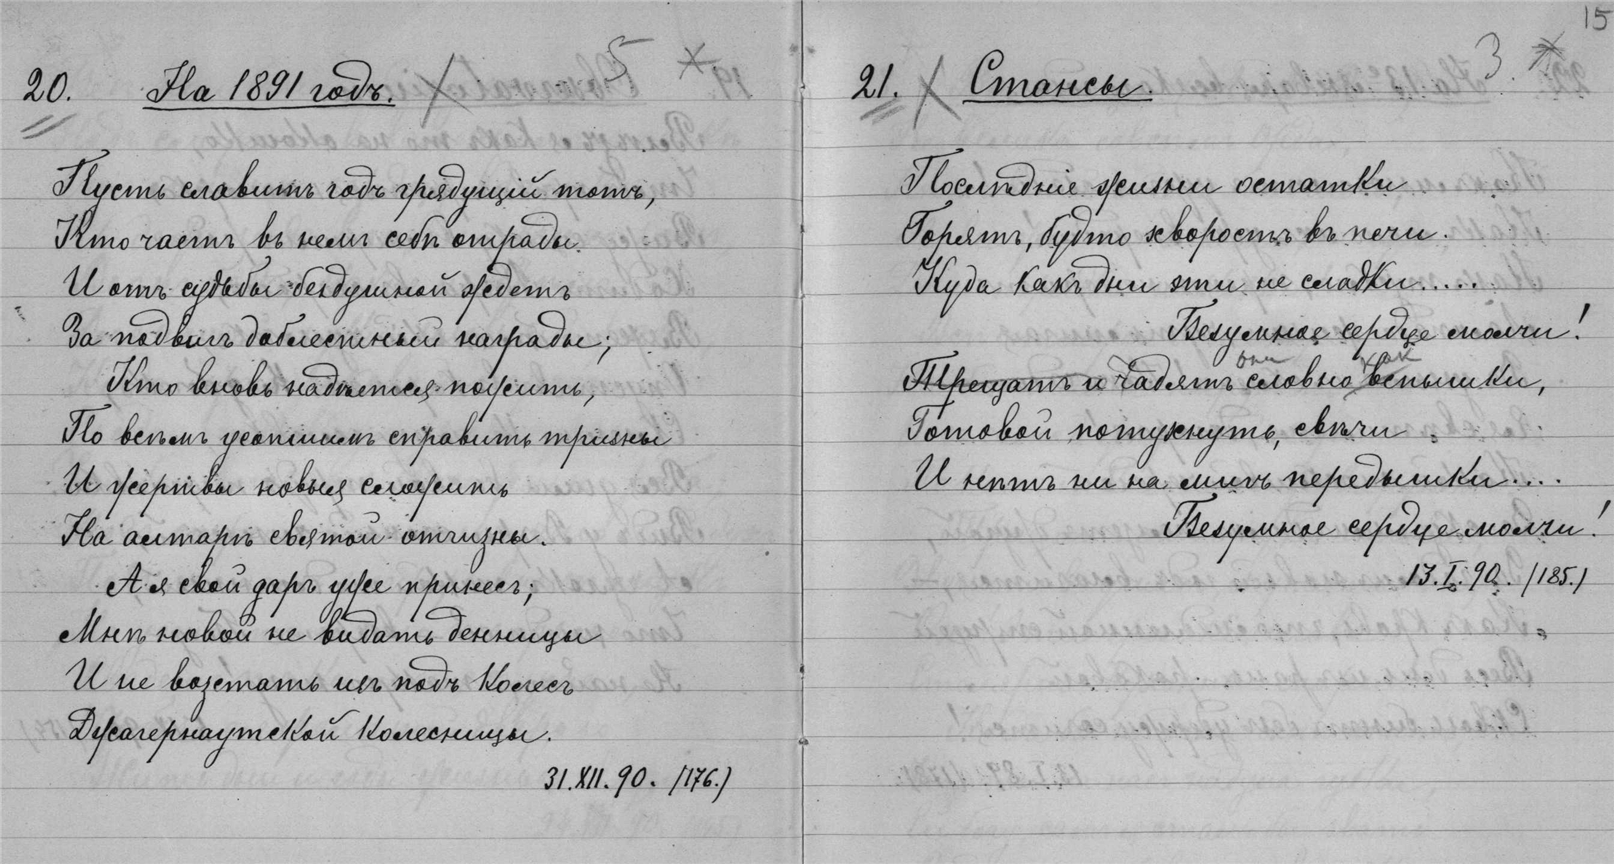 5
20. На 1891 годъ.
Пусть славитъ годъ грядущій тотъ,
Кто чаетъ въ немъ себѣ отрады
И отъ судьбы бездушной ждетъ
За подвигъ доблестный награды;
Кто вновь надѣется пожить,
По всѣмъ усопшимъ справить тризны
И жертвы новыя сложить
На алтарь святой отчизны.
А я свой даръ уже принесъ;
Мнѣ новой не видать денницы
И не возстать изъ подъ колесъ
Джагернаутской колесницы.
31.XII.90. /176./
15
3.
21. Стансы.
Послѣдніе жизни остатки
Горятъ, будто хворостъ въ печи.
Куда какъ дни эти не сладки.....
Безумное сердце молчи!
они как
Трещатъ и чадятъ словно вспышки,
Готовой потухнуть, свѣчи
И нѣтъ ни на мигъ передышки....
Безумное сердце молчи!
13.I.90. /185./